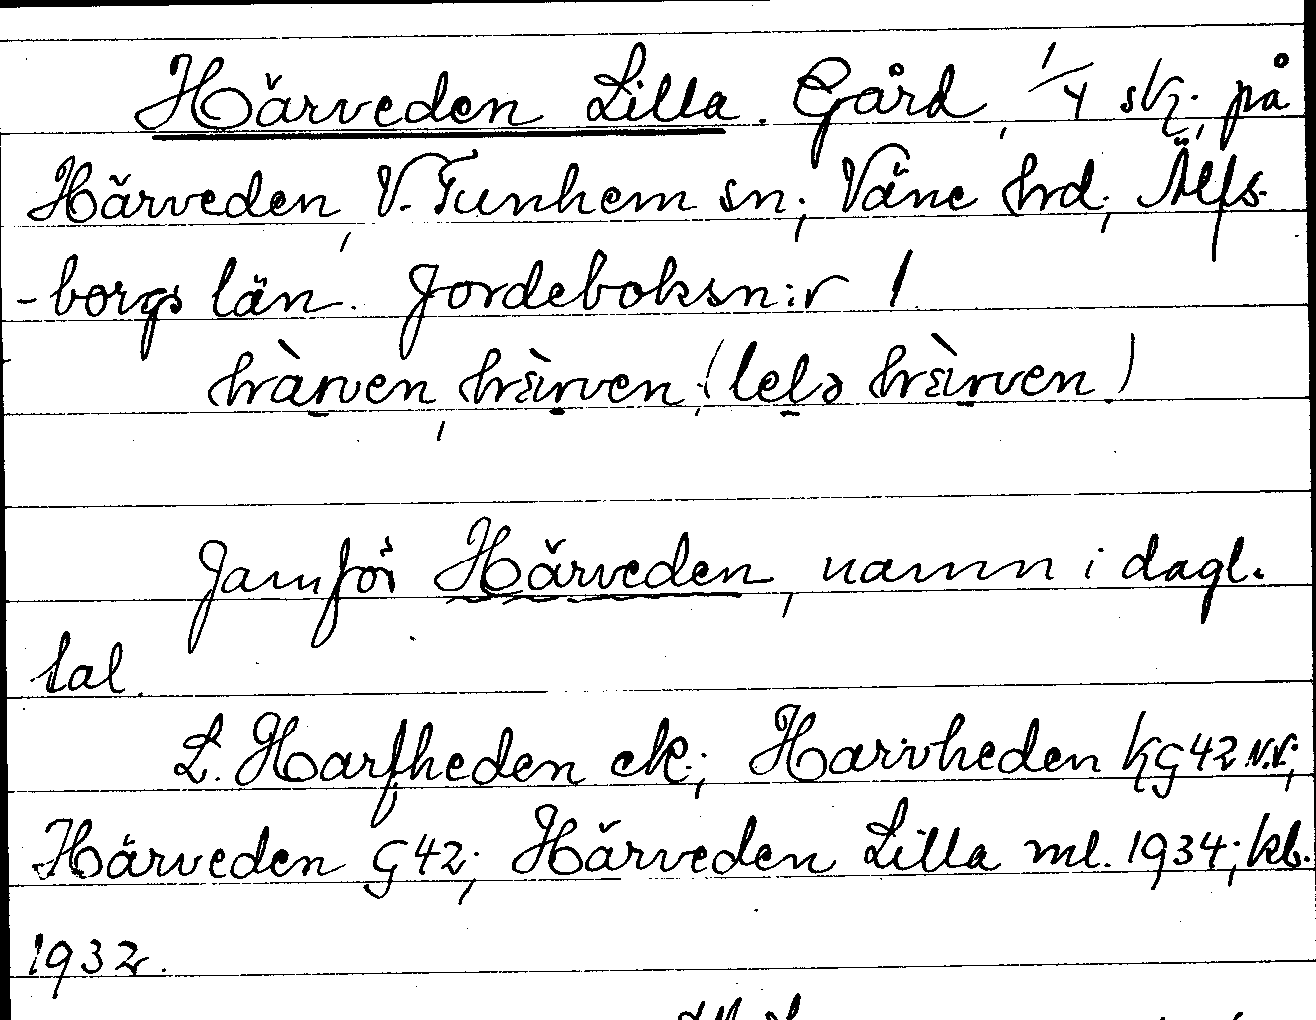 Härveden Lilla. Gård, 1/4 sk., på
Härveden, V. Tunhem sn; Väne hrd; Älfs-
-borgs län. Jordeboksn:r 1.
hàrven, härven; (lelə härven)
Jämför Härveden, namn i dagl.
tal.
L. Harfheden ek.; Harvheden KG42 N.V;
Härveden G42; Härveden Lilla ml. 1934; kb.
1932.